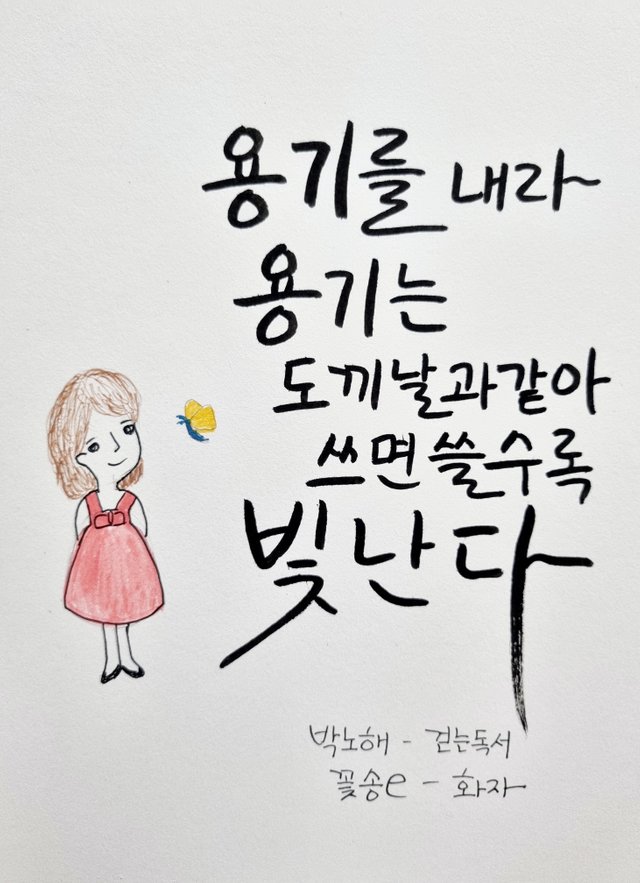 용기를 내라
용기는
도끼날과같아
쓰면 쓸수록
빛난다
박노해 - 걷는독서
꽃송e - 화자